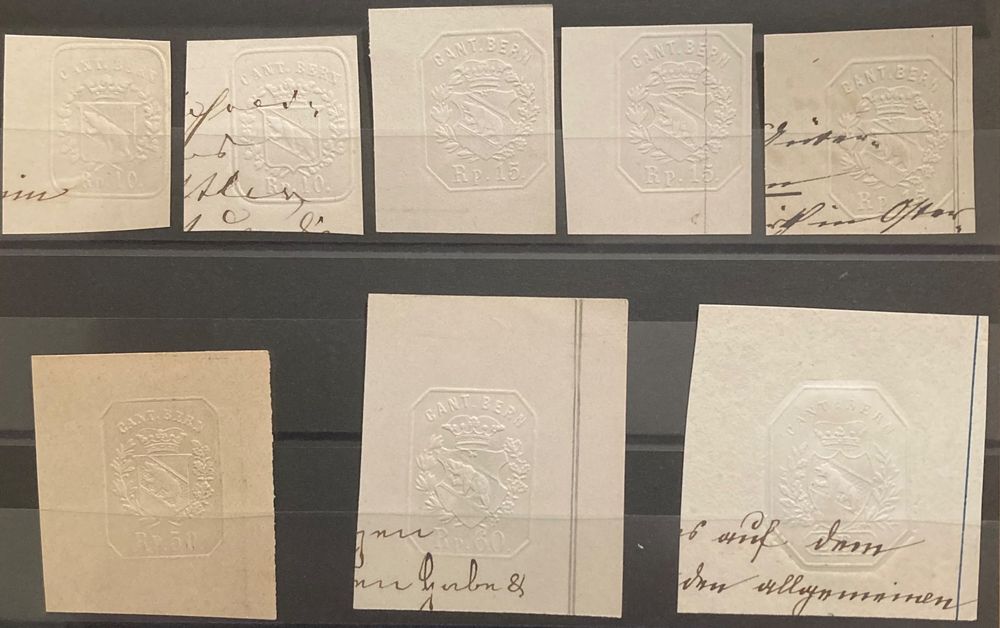 CANT. BERN
Rp. 10.
im
CANT. BERN
Rp. 10.
CANT. BERN
Rp. 15.
CANT. BERN
Rp. 15.
CANT. BERN
Rp.
in Oster
CANT. BERN
Rp. 50
CANT. BERN
Rp. 60.
gen
en Habe &
CANT. BERN
es auf dem
den allgemeinen